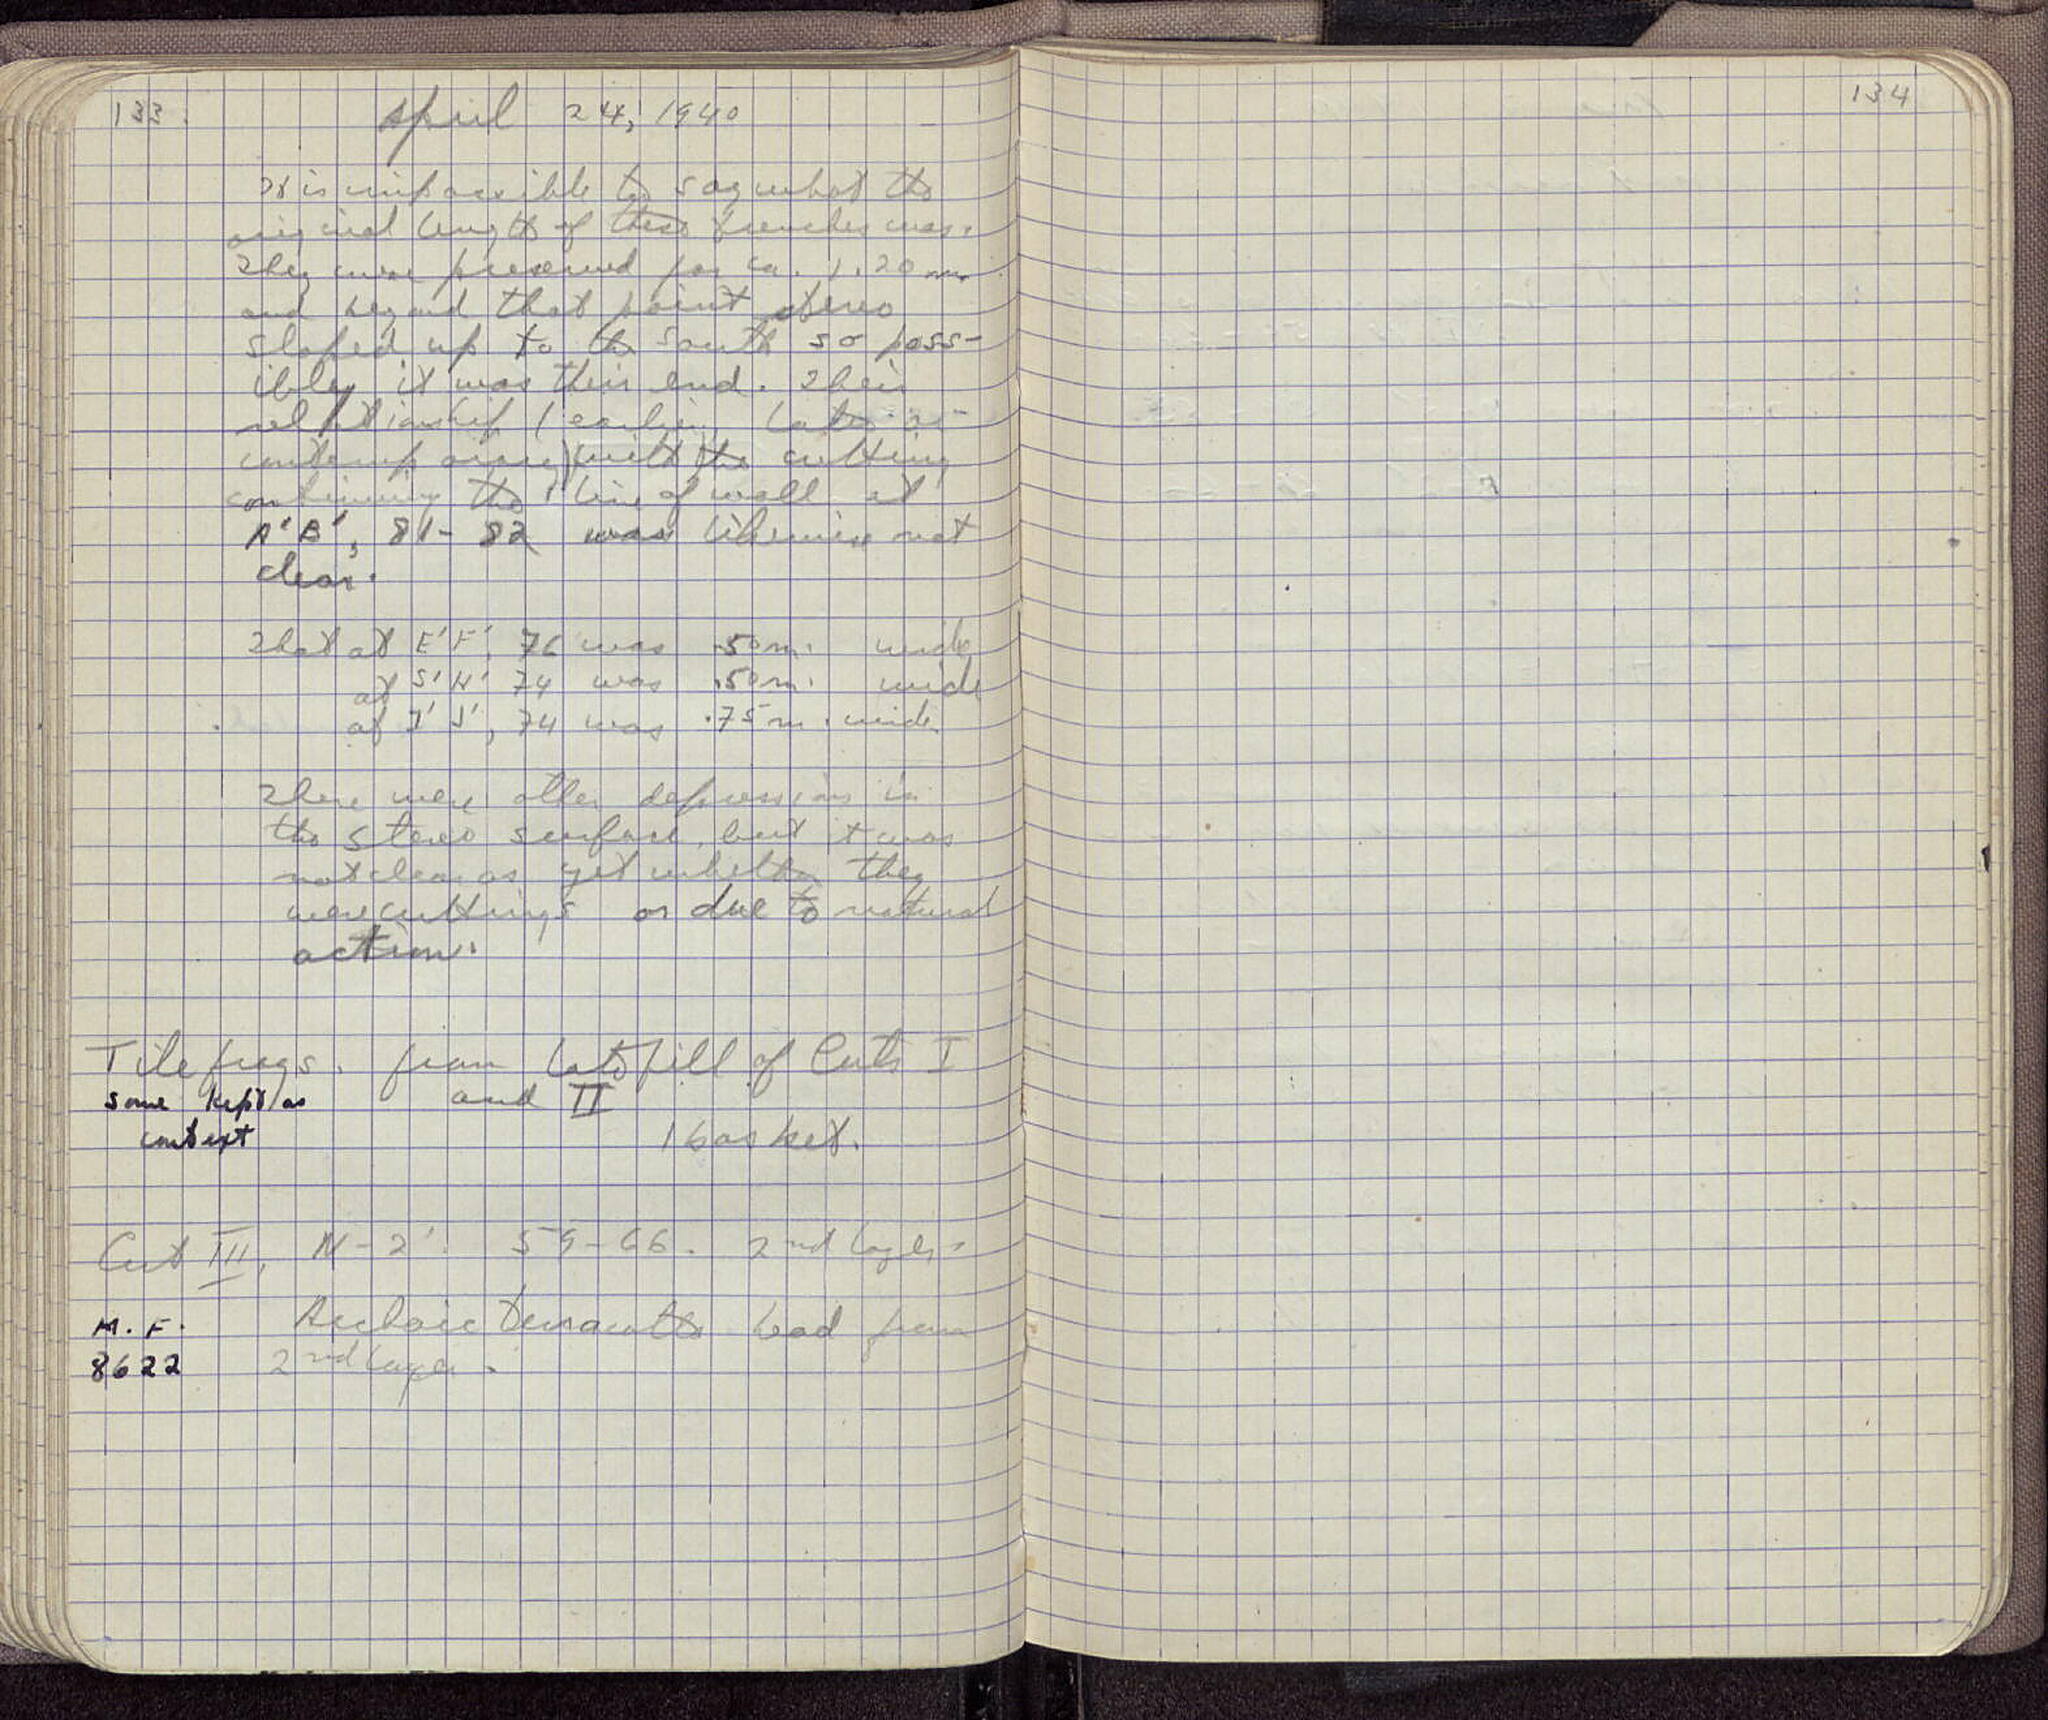 133.
April 24, 1940
It is impossible to say what the
original length of these trenches was.
They were preserved for ca. 1.20 m.
and beyond that point stereo
sloped up to the south so poss-
ibley it was their end. Their
relationship (earlier, later or
contemporary) with the cutting
continuing the line of wall at
A'B', 81-82 was likewise not
clear.
That at E'F', 76 was .50 m. wide
at 74 was .50 m. wide
at I'J', 74 was .75 m. wide
There were other depressions in
the stereo surface, but it was
not clear as yet whether they
were cuttings or due to natural
action.
Tile frags. from late fill of Cuts I
some kept as and II
context 1 basket.
Cut III, N-2'. 59-66. 2nd layer.
M.F. Archaic terracotta head from
8622 2nd layer.
134